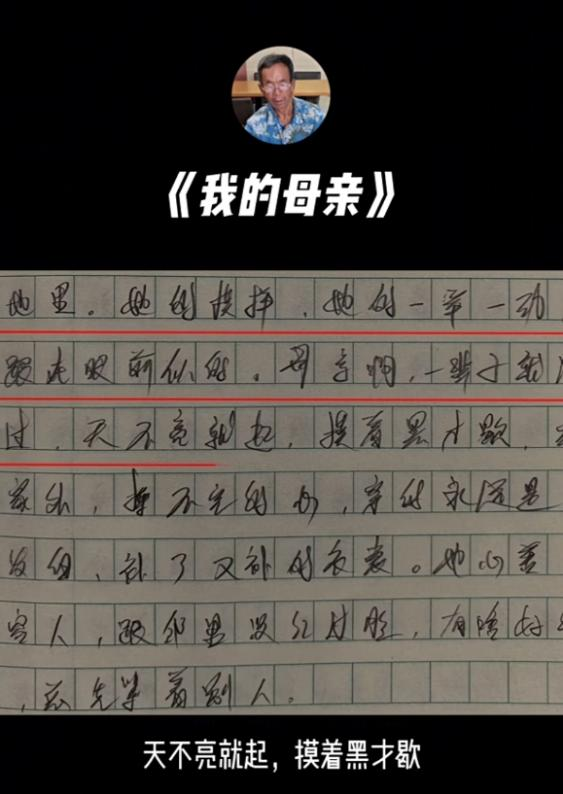 《我的母亲》
地里。她的模样，她的一举一动
跟在眼前似的。母亲啊，一辈子就没
过，天不亮就起，摸着黑才歇，
家外，操不完的心，穿的永远是
发白、补了又补的衣裳。她心善
容人，跟邻里没红过脸，有啥好
，总先紧着别人。
天不亮就起，摸着黑才歇